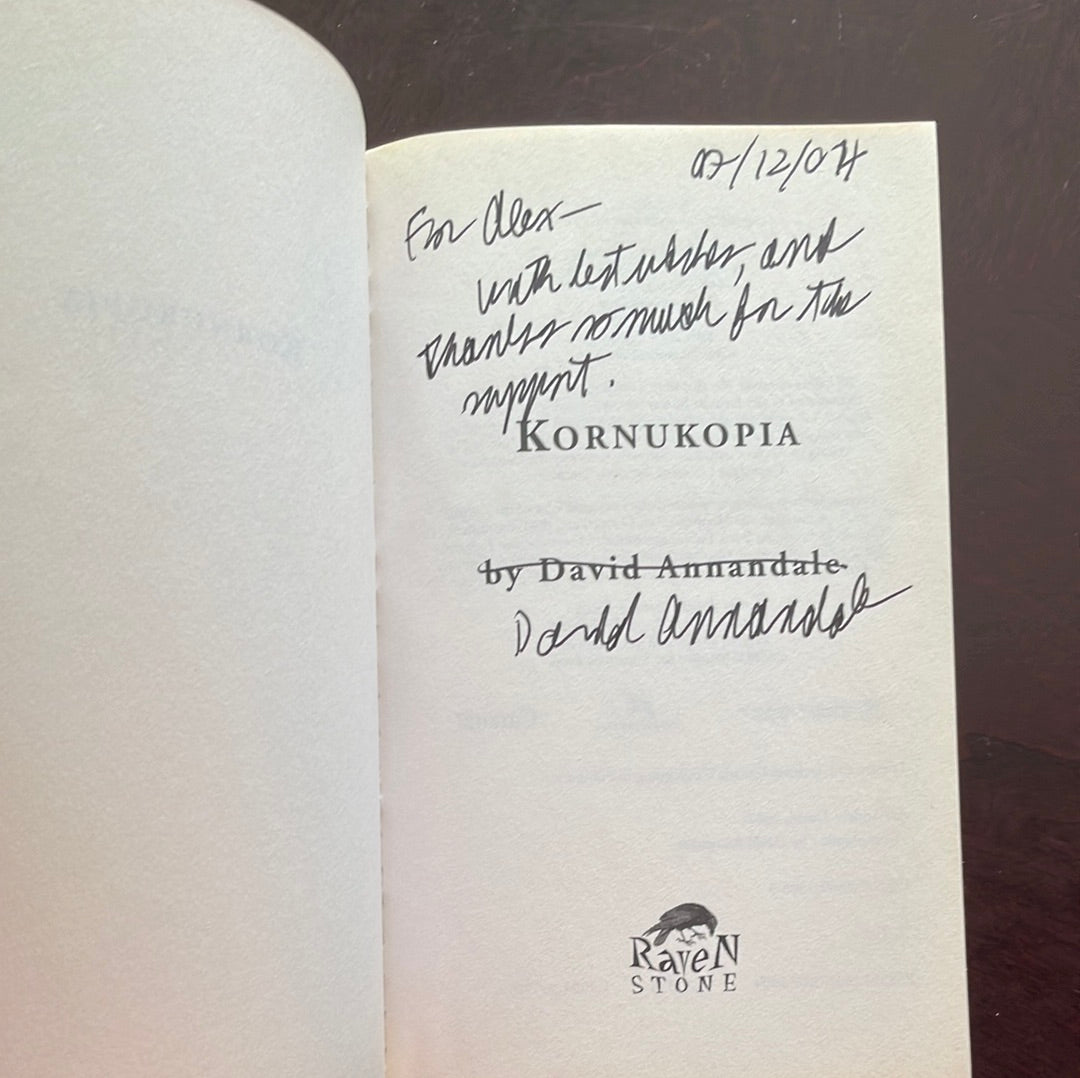 02/12/04
For Alex—
with best wishes, and
thanks so much for the
support.
KORNUKOPIA
by David Annandale
David Annandale
RAVEN
STONE